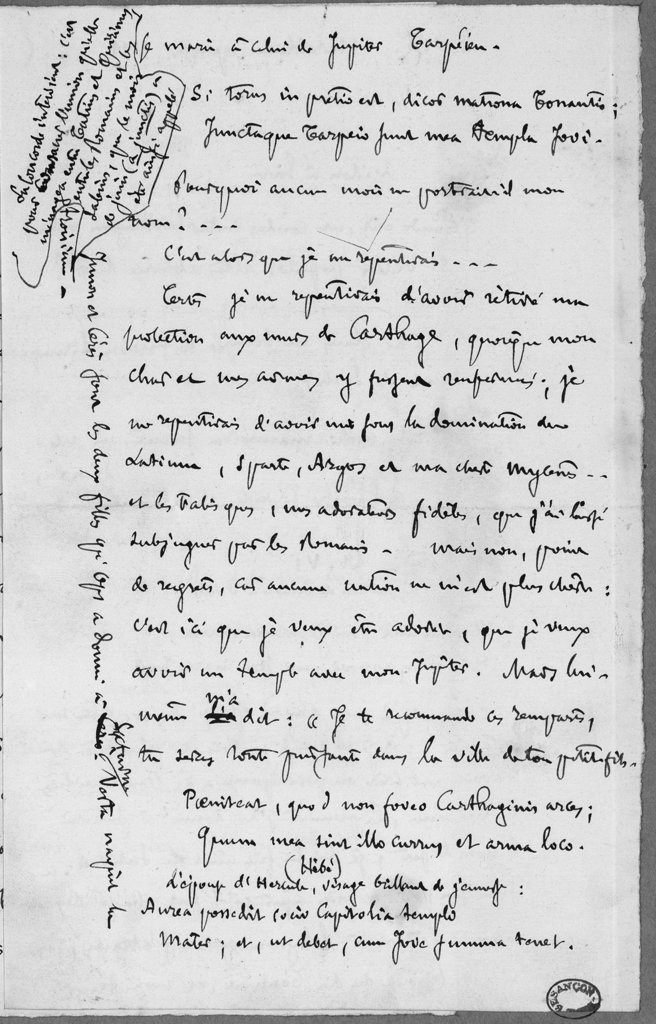 se marie à celui de Jupiter Tarpéien.
Si torus in pretio est, dicor matrona Tonantis;
Junctaque Tarpeio sunt mea templa Jovi.
Pourquoi aucun mois ne porterait-il mon
nom? - - -
C'est alors que je me repentirais - - -
Certes je me repentirais d'avoir retiré ma
protection aux murs de Carthage, quoique mon
char et mes armes y fussent renfermés; je
me repentirais d'avoir mis sous la domination du
Latium, Sparte, Argos et ma chère Mycènes - -
et les Falisques, mes adorateurs fidèles, que j'ai laissé
subjuguer par les Romains - mais non, point
de regrets, car aucune nation ne m'est plus chère:
c'est ici que je veux être adorée, que je veux
avoir un temple avec mon Jupiter. Mars lui-
même m'a dit: « Je te recommande ces remparts,
tu seras toute puissante dans la ville de ton petit-fils.
Pœniteat, quod non foveo Carthaginis arces;
Quum mea sint illo currus et arma loco.
(Hébé)
d'épouse d'Hercule, visage brillant de jeunesse:
Aurea possedit socio Capitolia templo
Mater; et, ut debet, cum Jove summa tenet.
La concorde intervient: c'est
pour l'union qu'elle
ménagea entre Tatius et Quirinus
entre les Romains et les
Sabins, que le mois
de juin (a junctis) a
été ainsi appelé
Junon et Cérès sont les deux filles qu'Ops a donné à
Saturne. Vesta naquit la
BESANÇON